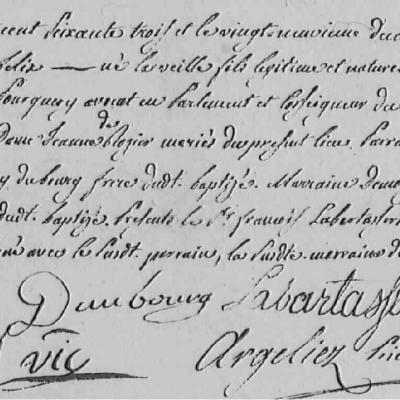 cent soixante trois et le vingt neuvieme du
felix — né la veille fils legitime et nature
avocat en parlement et coseigneur du
Dame Jeanne de mariés du present lieu parra
dubourg frere dudt. baptizé. Marraine
dudt. baptizé. presents le Sr. françois Labertas
avec le susdt. parrain, la susdte. marraine
Dumbourg Labartasse
vic Argeliez